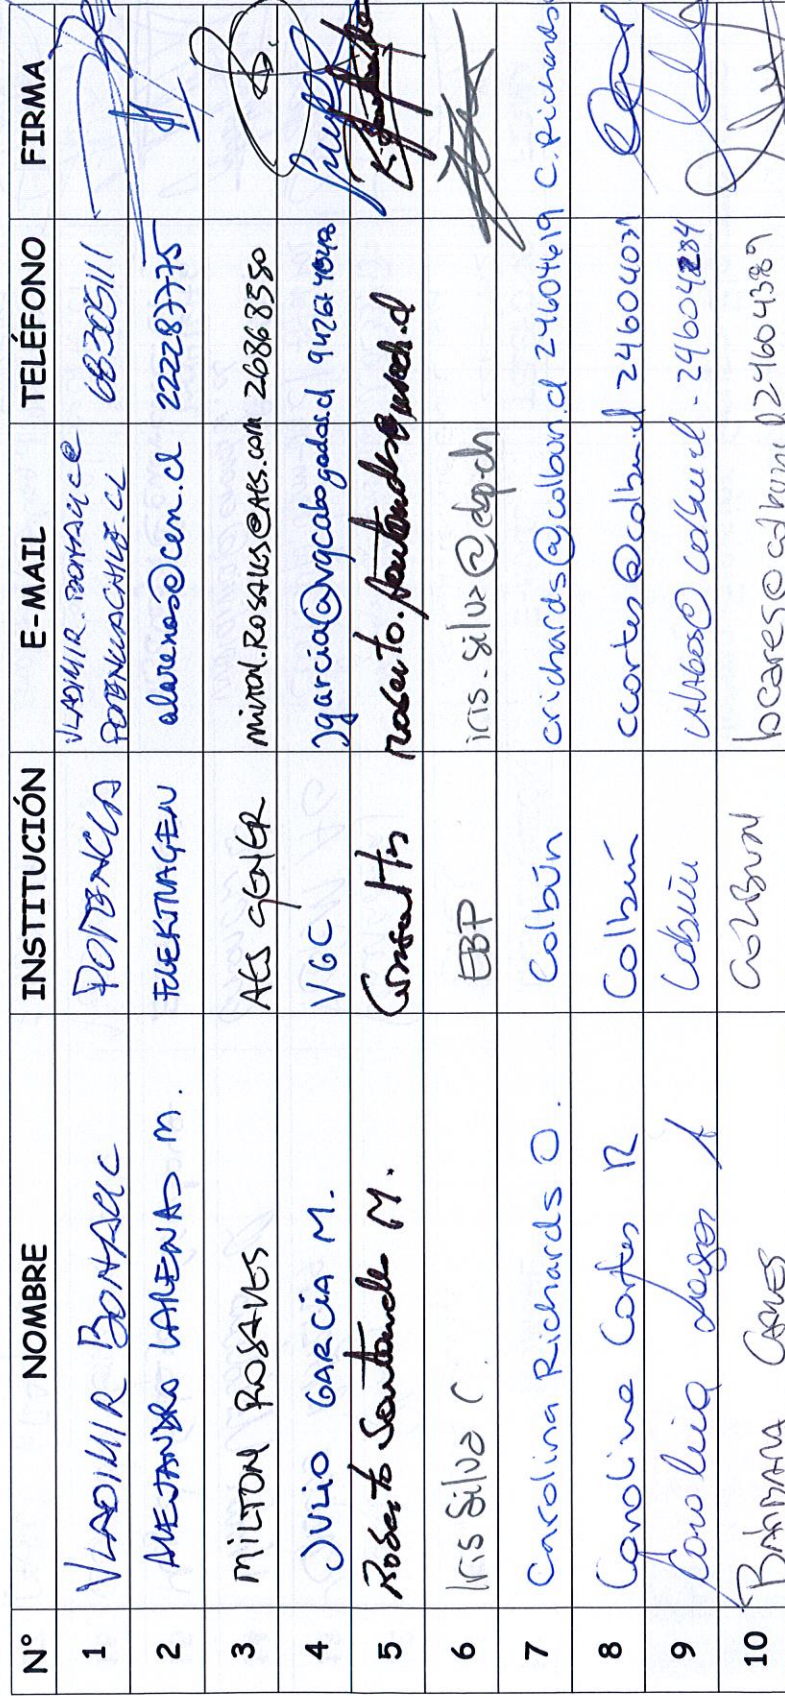 N° NOMBRE INSTITUCIÓN E-MAIL TELÉFONO FIRMA
1 VLADIMIR BONACIC POTENCIA VLADIMIR.BONACIC@
POTENCIACHILE.CL 68305111
2 ALEJANDRO LARENAS M. ELEKTRAGEN alarenas@cen.cl 222287775
3 MILTON ROSALES AES GENER MILTON.ROSALES@AES.COM 26868580
4 JULIO GARCÍA M. VGC jgarcia@vgcabogados.cl
5 Roberto Santander M.
6 Iris Silva C. EBP iris.silva@ebp.ch
7 Carolina Richards O. Colbún crichards@colbun.cl 24604619 C. Richards
8 Carolina Cortes R Colbún ccortes@colbun.cl 24604031
9 Carolina Colbún 24604284
10 BÁRBARA COLBUN 024604389